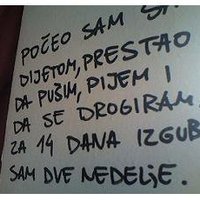 POČEO SAM SA
DIJETOM, PRESTAO
DA PUŠIM, PIJEM I
DA SE DROGIRAM.
ZA 14 DANA IZGUB
SAM DVE NEDELJE.